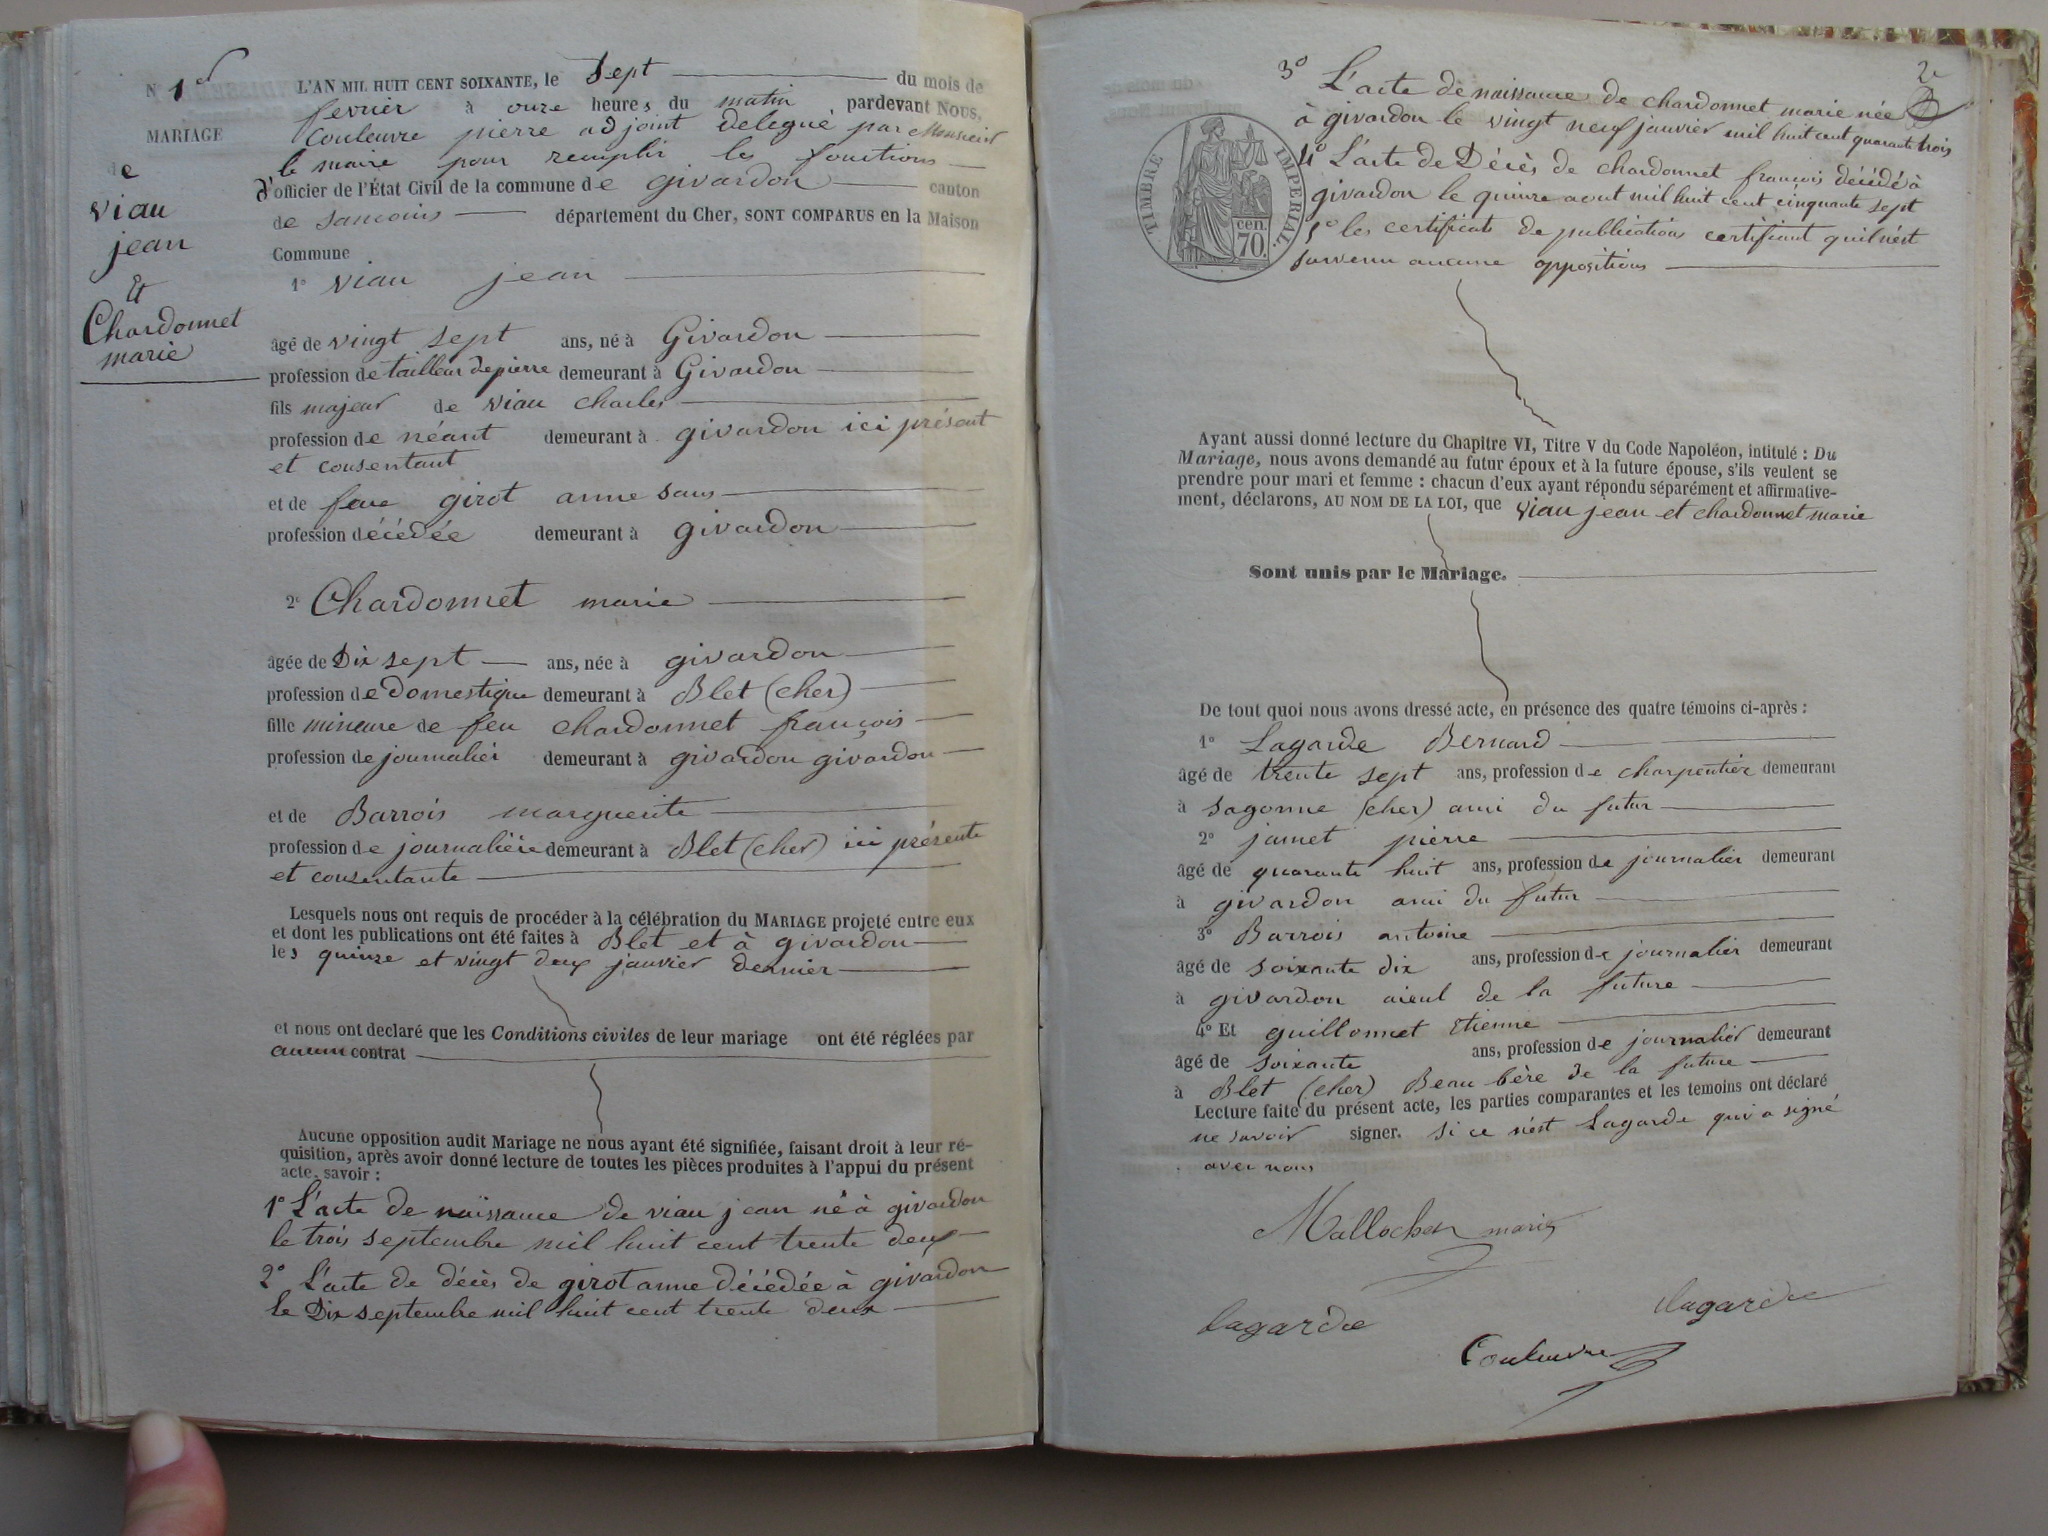 N° 1er
MARIAGE
de
viau
jean
Et
Chardonnet
marie
L'AN MIL HUIT CENT SOIXANTE, le Sept du mois de
fevrier à onze heures du matin pardevant Nous,
Couleuvre pierre adjoint delegué par Monsieur
le maire pour remplir les fonctions
d'officier de l'État Civil de la commune de givardon canton
de sancoins département du Cher, SONT COMPARUS en la Maison
Commune
1° viau jean
âgé de vingt sept ans, né à Givardon
profession de tailleur de pierre demeurant à Givardon
fils majeur de viau charles
profession de néant demeurant à givardon ici présent
et consentant
et de feue girot anne sans
profession décédée demeurant à givardon
2° Chardonnet marie
âgée de Dix sept ans, née à givardon
profession de domestique demeurant à Blet (cher)
fille mineure de feu chardonnet françois
profession de journalier demeurant à givardon givardon
et de Barrois marguerite
profession de journalière demeurant à Blet (cher) ici présente
et consentante
Lesquels nous ont requis de procéder à la célébration du MARIAGE projeté entre eux
et dont les publications ont été faites à Blet et à givardon
les quinze et vingt deux janvier dernier
et nous ont declaré que les Conditions civiles de leur mariage ont été réglées par
aucun contrat
Aucune opposition audit Mariage ne nous ayant été signifiée, faisant droit à leur ré-
quisition, après avoir donné lecture de toutes les pièces produites à l'appui du présent
acte, savoir :
1° L'acte de naissance de viau jean né à givardon
le trois septembre mil huit cent trente deux
2° L'acte de décès de girot anne décédée à givardon
le Dix septembre mil huit cent trente deux
2e
3° L'acte de naissance de chardonnet marie née
à givardon le vingt neuf janvier mil huit cent quarante trois
4° L'acte de Décès de chardonnet françois décédé à
givardon le quinze aout mil huit cent cinquante sept
5° les certificats de publications certifiant qu'il n'est
survenu aucune oppositions
TIMBRE IMPERIAL.
cen.
70.
Ayant aussi donné lecture du Chapitre VI, Titre V du Code Napoléon, intitulé : Du
Mariage, nous avons demandé au futur époux et à la future épouse, s'ils veulent se
prendre pour mari et femme : chacun d'eux ayant répondu séparément et affirmative-
ment, déclarons, AU NOM DE LA LOI, que viau jean et chardonnet marie
Sont unis par le Mariage.
De tout quoi nous avons dressé acte, en présence des quatre témoins ci-après :
1° Lagarde Bernard
âgé de trente sept ans, profession de charpentier demeurant
à sagonne (cher) ami du futur
2° jamet pierre
âgé de quarante huit ans, profession de journalier demeurant
à givardon ami du futur
3° Barrois antoine
âgé de soixante dix ans, profession de journalier demeurant
à givardon aieul de la future
4° Et guillonnet Etienne
âgé de soixante ans, profession de journalier demeurant
à Blet (cher) Beau bère de la future
Lecture faite du présent acte, les parties comparantes et les temoins ont déclaré
ne savoir signer. si ce n'est Lagarde qui a signé
avec nous
lagarde
lagarde
Couleuvre